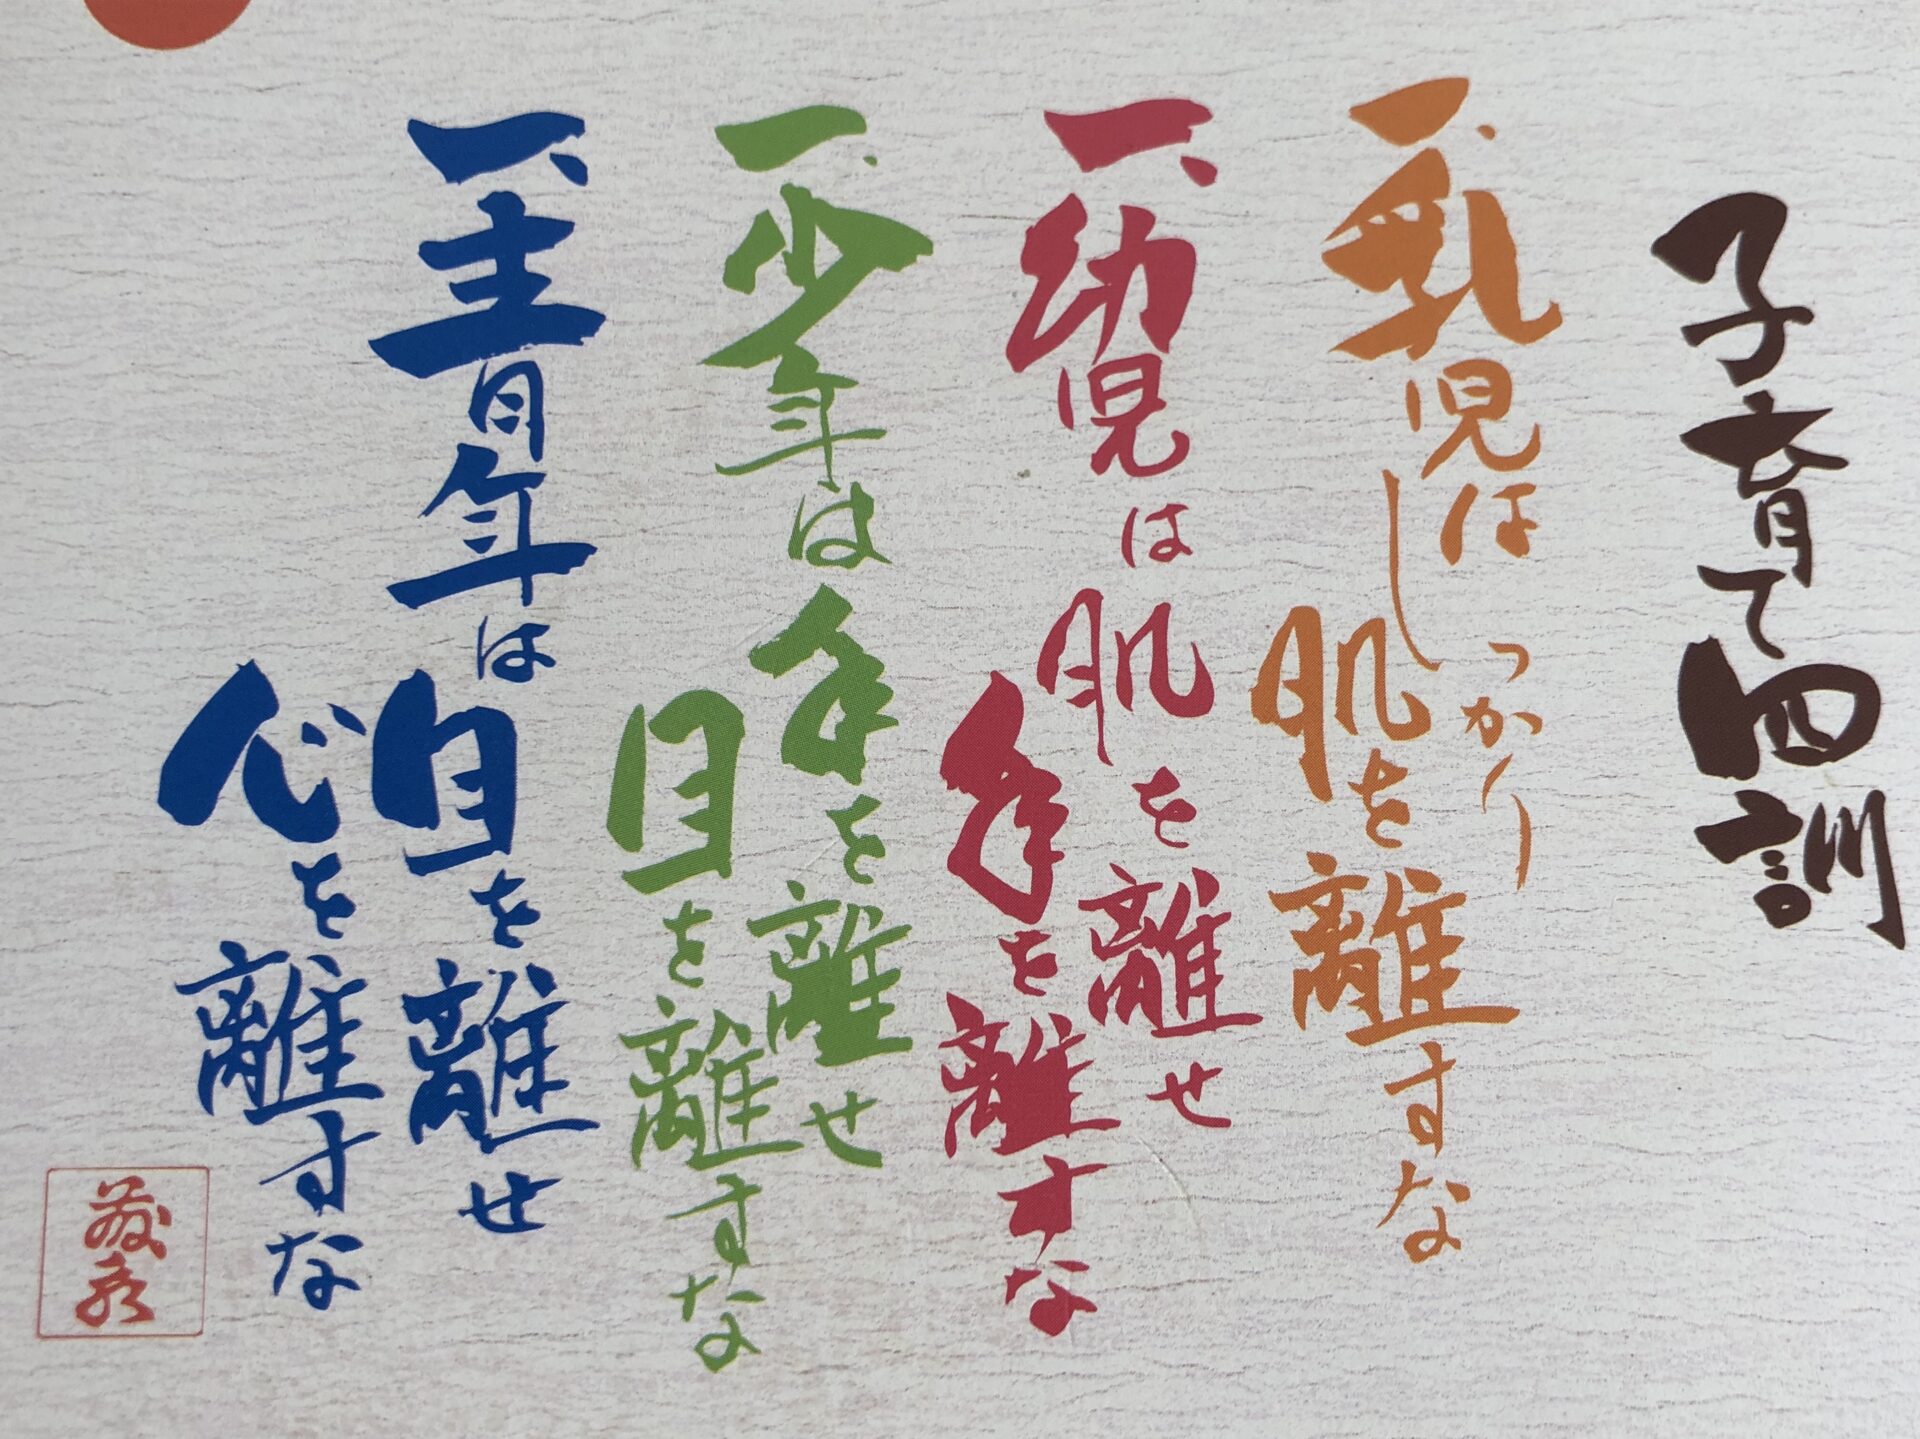 子育て四訓
一、乳児は
しっかり
肌を離すな
一、幼児は
肌を離せ
手を離すな
一、少年は
手を離せ
目を離すな
一、青年は
目を離せ
心を離すな